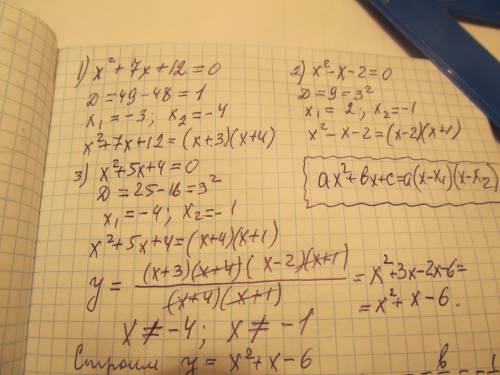 1) x²+7x+12=0
D=49-48=1
x₁=-3; x₂=-4
x²+7x+12=(x+3)(x+4)
2) x²-x-2=0
D=9=3²
x₁=2, x₂=-1
x²-x-2=(x-2)(x+1)
3) x²+5x+4=0
D=25-16=3²
x₁=-4; x₂=-1
x²+5x+4=(x+4)(x+1)
ax²+bx+c=a(x-x₁)(x-x₂)
y = (x+3)(x+4)(x-2)(x+1) / (x+4)(x+1) = x²+3x-2x-6=
=x²+x-6.
x≠-4; x≠-1
Строим y=x²+x-6